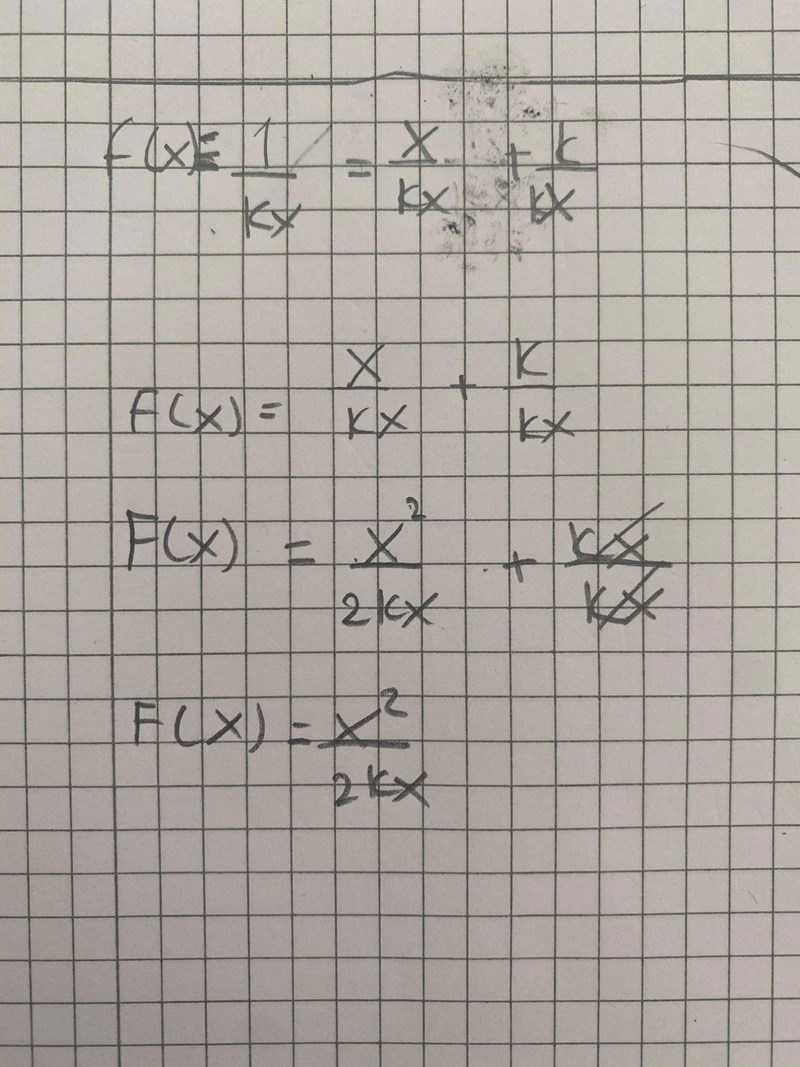 F(x) = 1/kx = x/kx + k/kx
F(x) = x/kx + k/kx
F(x) = x²/2kx + kx/kx
F(x) = x²/2kx